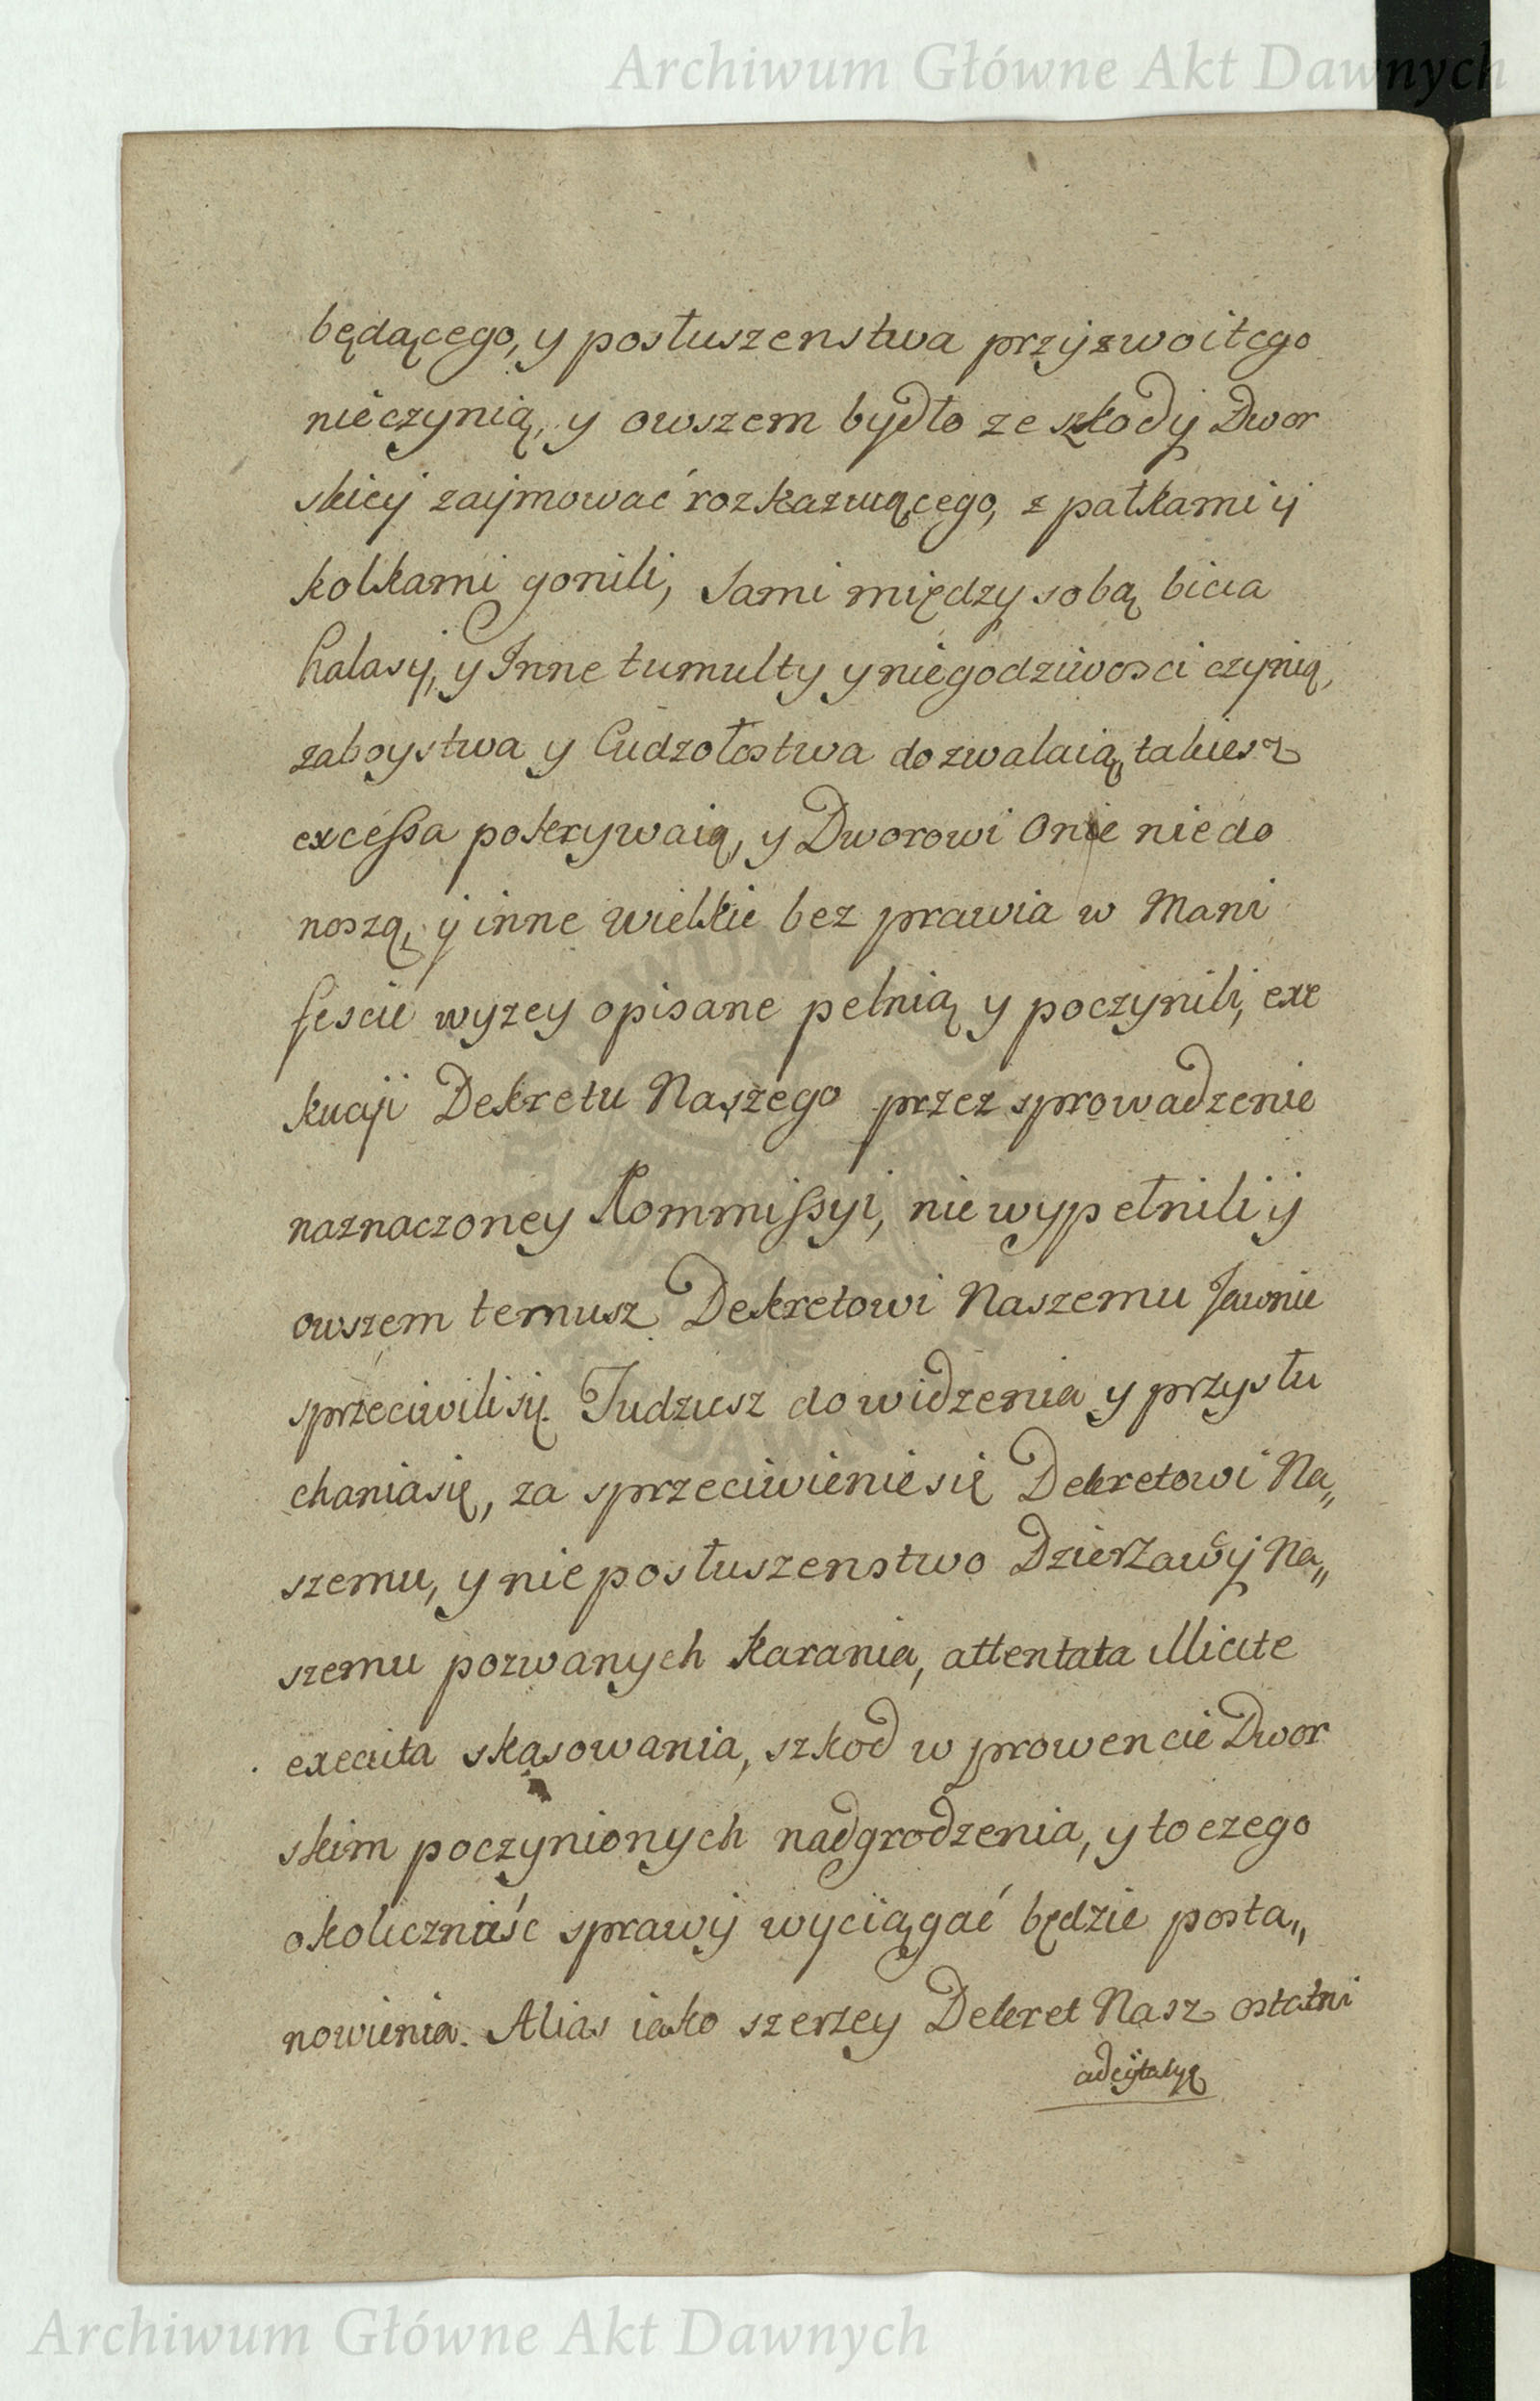 Archiwum Główne Akt Dawnych
będącego, y posłuszenstwa przyzwoitego
nieczynią, y owszem bydło ze szkody Dwor
skiey zaymować rozkazuiącego, z pałkami y
kolkami gonili, Sami między sobą bicia
halasy, y Inne tumulty y niegodziwosci czynią,
zaboystwa y Cudzołostwa dozwalaią, takiesz
excessa pokrywaią, y Dworowi onie nie do
noszą, y inne wielkie bez prawia w Mani
fescie wyzey opisane pełnią y poczynili, exe
kucyi Dekretu Naszego przez sprowadzenie
naznaczoney Kommissyi, nie wypełnili y
owszem temusz Dekretowi Naszemu Jawnie
sprzeciwili się. Tudziesz do widzenia y przysłu
chania się, za sprzeciwienie się Dekretowi Na„
szemu, y nie posłuszenstwo Dzierżawcy Na„
szemu pozwanych karania, attentata illicite
executa skasowania, szkod w prowencie Dwor
skim poczynionych nadgrodzenia, y to czego
okoliczność sprawy wyciągać będzie posta„
nowienia. Alias iako szerzey Dekret Nasz ostatni
adcytacyą
ARCHIWUM GŁÓWNE AKT DAWNYCH
Archiwum Główne Akt Dawnych